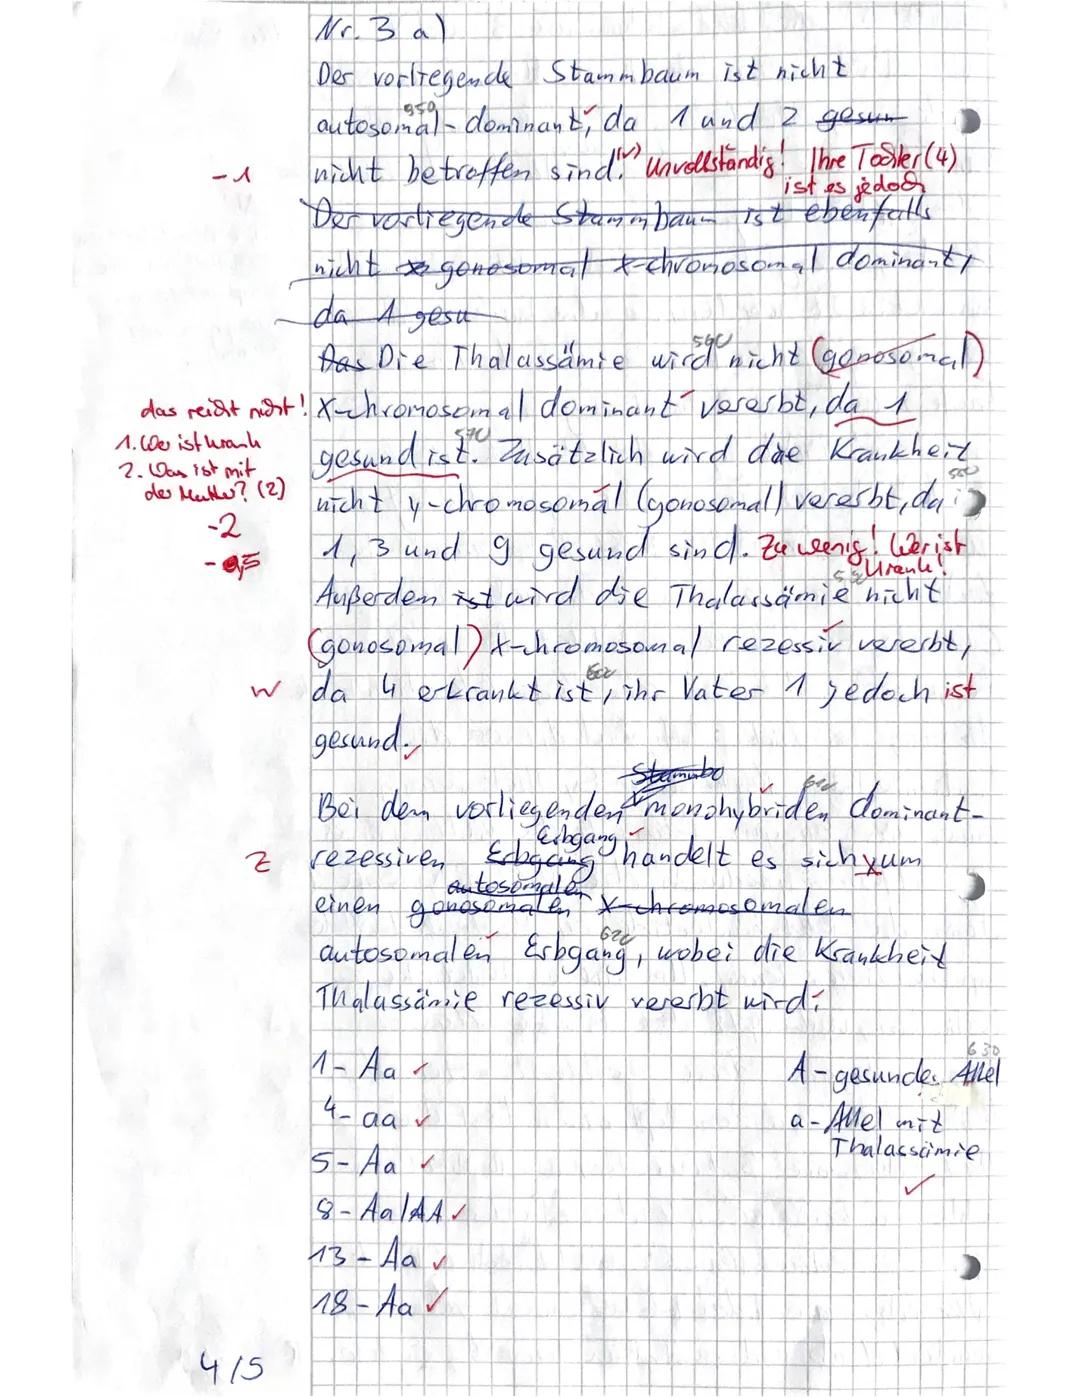 Nr. 3 a)
Der vorliegende Stammbaum ist nicht
550
autosomal-dominant, da 1 und 2 gesun
nicht betroffen sind. (✓) Unvollständig! Ihre Tochter (4)
ist es jedoch
-1
Der vorliegende Stammbaum ist ebenfalls
nicht gonosomal x-chromosomal dominant,
da 1 gesu
560
Das Die Thalassämie wird nicht (gonosomal)
das reicht nicht!
X-chromosomal dominant vererbt, da 1
1. Wer ist krank
570
gesund ist. Zusätzlich wird die Krankheit
2. Was ist mit
der Mutter? (2)
580
nicht y-chromosomal (gonosomal) vererbt, da
-2
1, 3 und 9 gesund sind. Zu wenig! Wer ist
krank!
-0,5
590
Außerden ist wird die Thalassämie nicht
(gonosomal) x-chromosomal rezessiv vererbt,
600
W da 4 erkrankt ist, ihr Vater 1 jedoch ist
gesund. ✓
Stammba
610
Bei dem vorliegenden monohybriden dominant-
Erbgang
Z rezessiven Erbgang handelt es sich um
autosomalen
einen gonosomalen x-chromosomalen
620
autosomalen Erbgang, wobei die Krankheit
Thalassämie rezessiv vererbt wird.
630
1 - Aa ✓ A - gesundes Allel
4 - aa ✓ a - Allel mit
Thalassämie ✓
5 - Aa ✓
8 - Aa/AA ✓
13 - Aa ✓
18 - Aa ✓
4/5